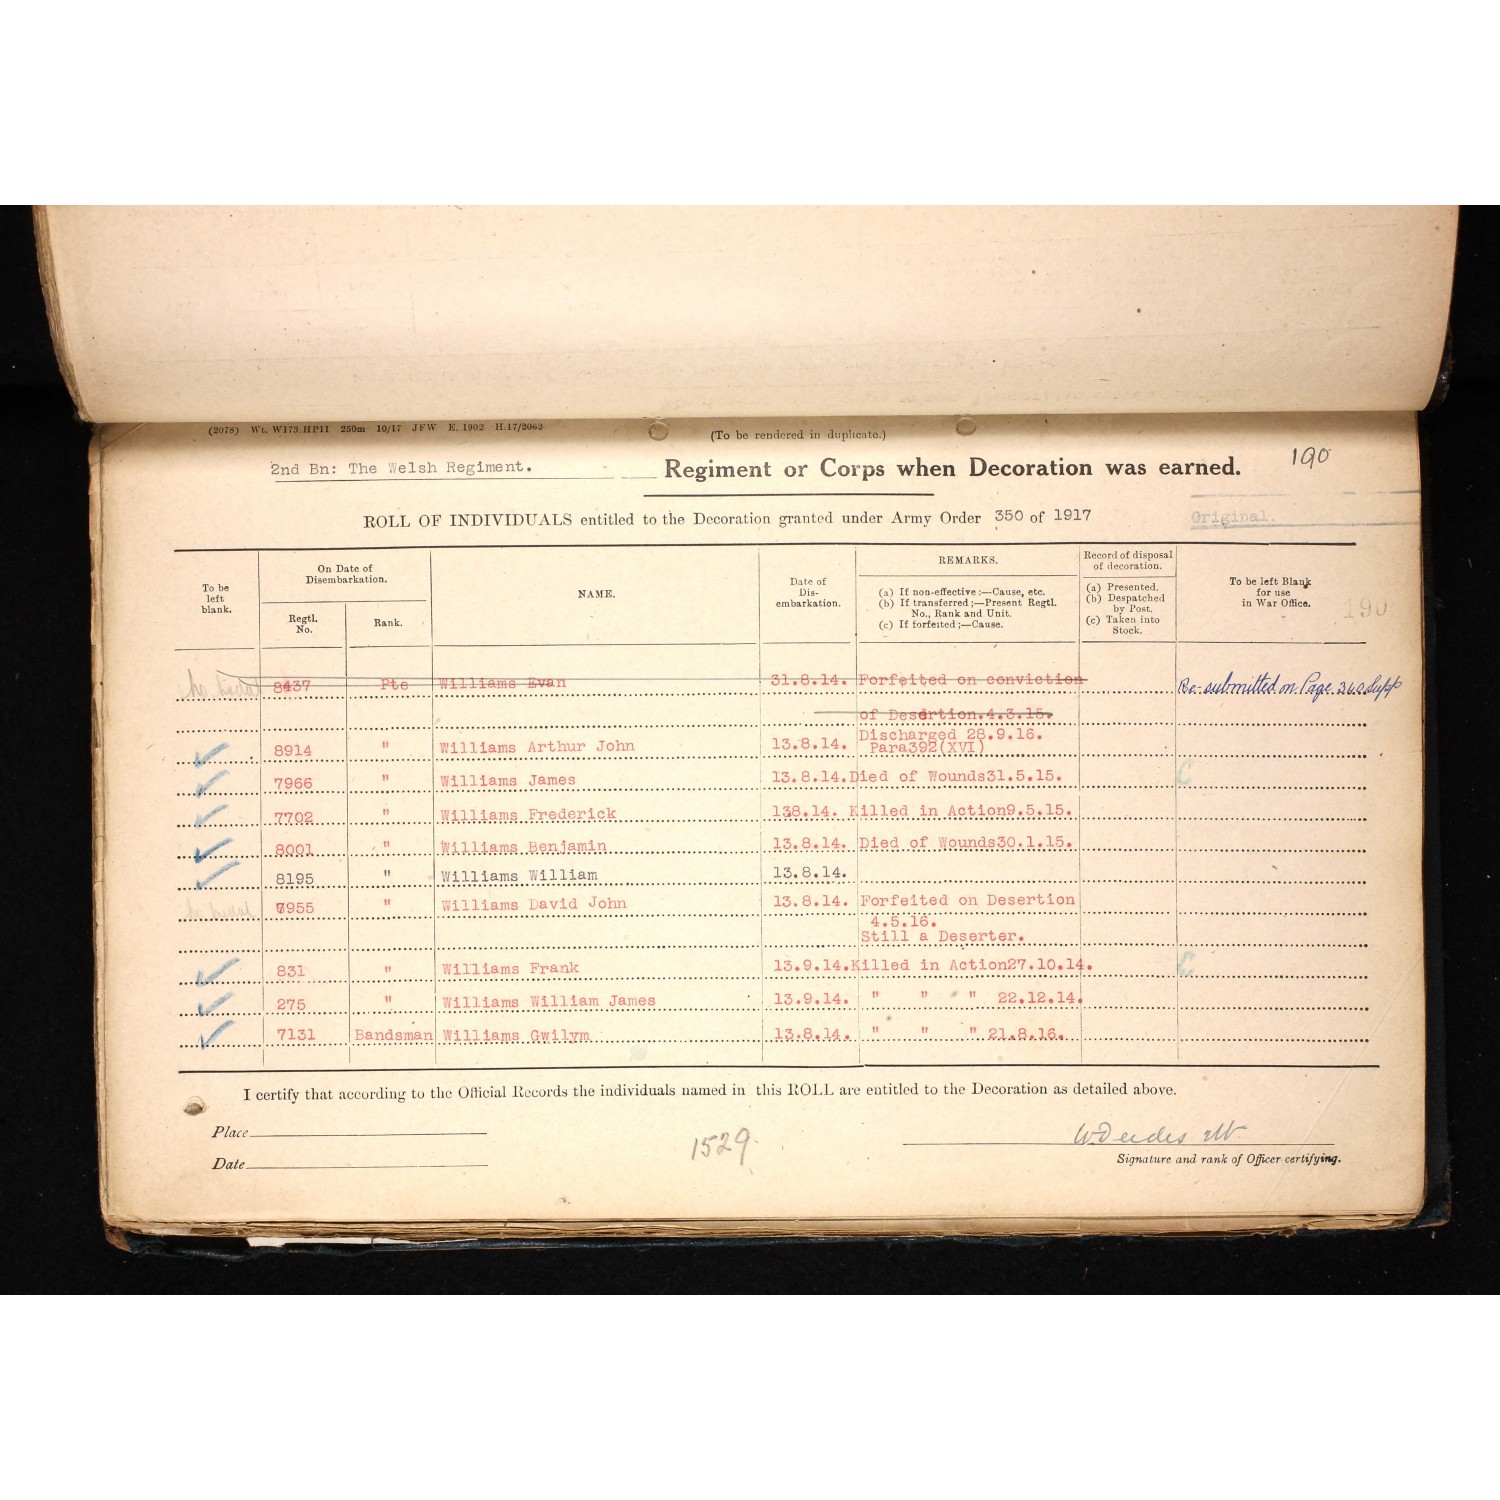 (2078) Wt. W173/HP11 250m 10/17 JFW E. 1902 H.17/2062
(To be rendered in duplicate.)
2nd Bn: The Welsh Regiment. Regiment or Corps when Decoration was earned. 190
ROLL OF INDIVIDUALS entitled to the Decoration granted under Army Order 350 of 1917 Original.
To be left blank.
On Date of Disembarkation.
Regtl. No.
Rank.
NAME.
Date of Dis-embarkation.
REMARKS.
(a) If non-effective:—Cause, etc.
(b) If transferred;—Present Regtl. No., Rank and Unit.
(c) If forfeited;—Cause.
Record of disposal of decoration.
(a) Presented.
(b) Despatched by Post.
(c) Taken into Stock.
To be left Blank for use in War Office.
190
No medal 8437 Pte Williams Evan 31.8.14. Forfeited on conviction Re-submitted on Page 360 Supp
of Desertion.4.3.15.
8914 " Williams Arthur John 13.8.14. Discharged 28.9.16.
Para392(XVI)
7966 " Williams James 13.8.14. Died of Wounds31.5.15. C
7702 " Williams Frederick 138.14. Killed in Action9.5.15.
8001 " Williams Benjamin 13.8.14. Died of Wounds30.1.15.
8195 " Williams William 13.8.14.
No medal 7955 " Williams David John 13.8.14. Forfeited on Desertion
4.5.16.
Still a Deserter.
831 " Williams Frank 13.9.14. Killed in Action27.10.14. C
275 " Williams William James 13.9.14. " " " 22.12.14.
7131 Bandsman Williams Gwilym 13.8.14. " " " 21.8.16.
I certify that according to the Official Records the individuals named in this ROLL are entitled to the Decoration as detailed above.
Place
1529.
Date
Signature and rank of Officer certifying.